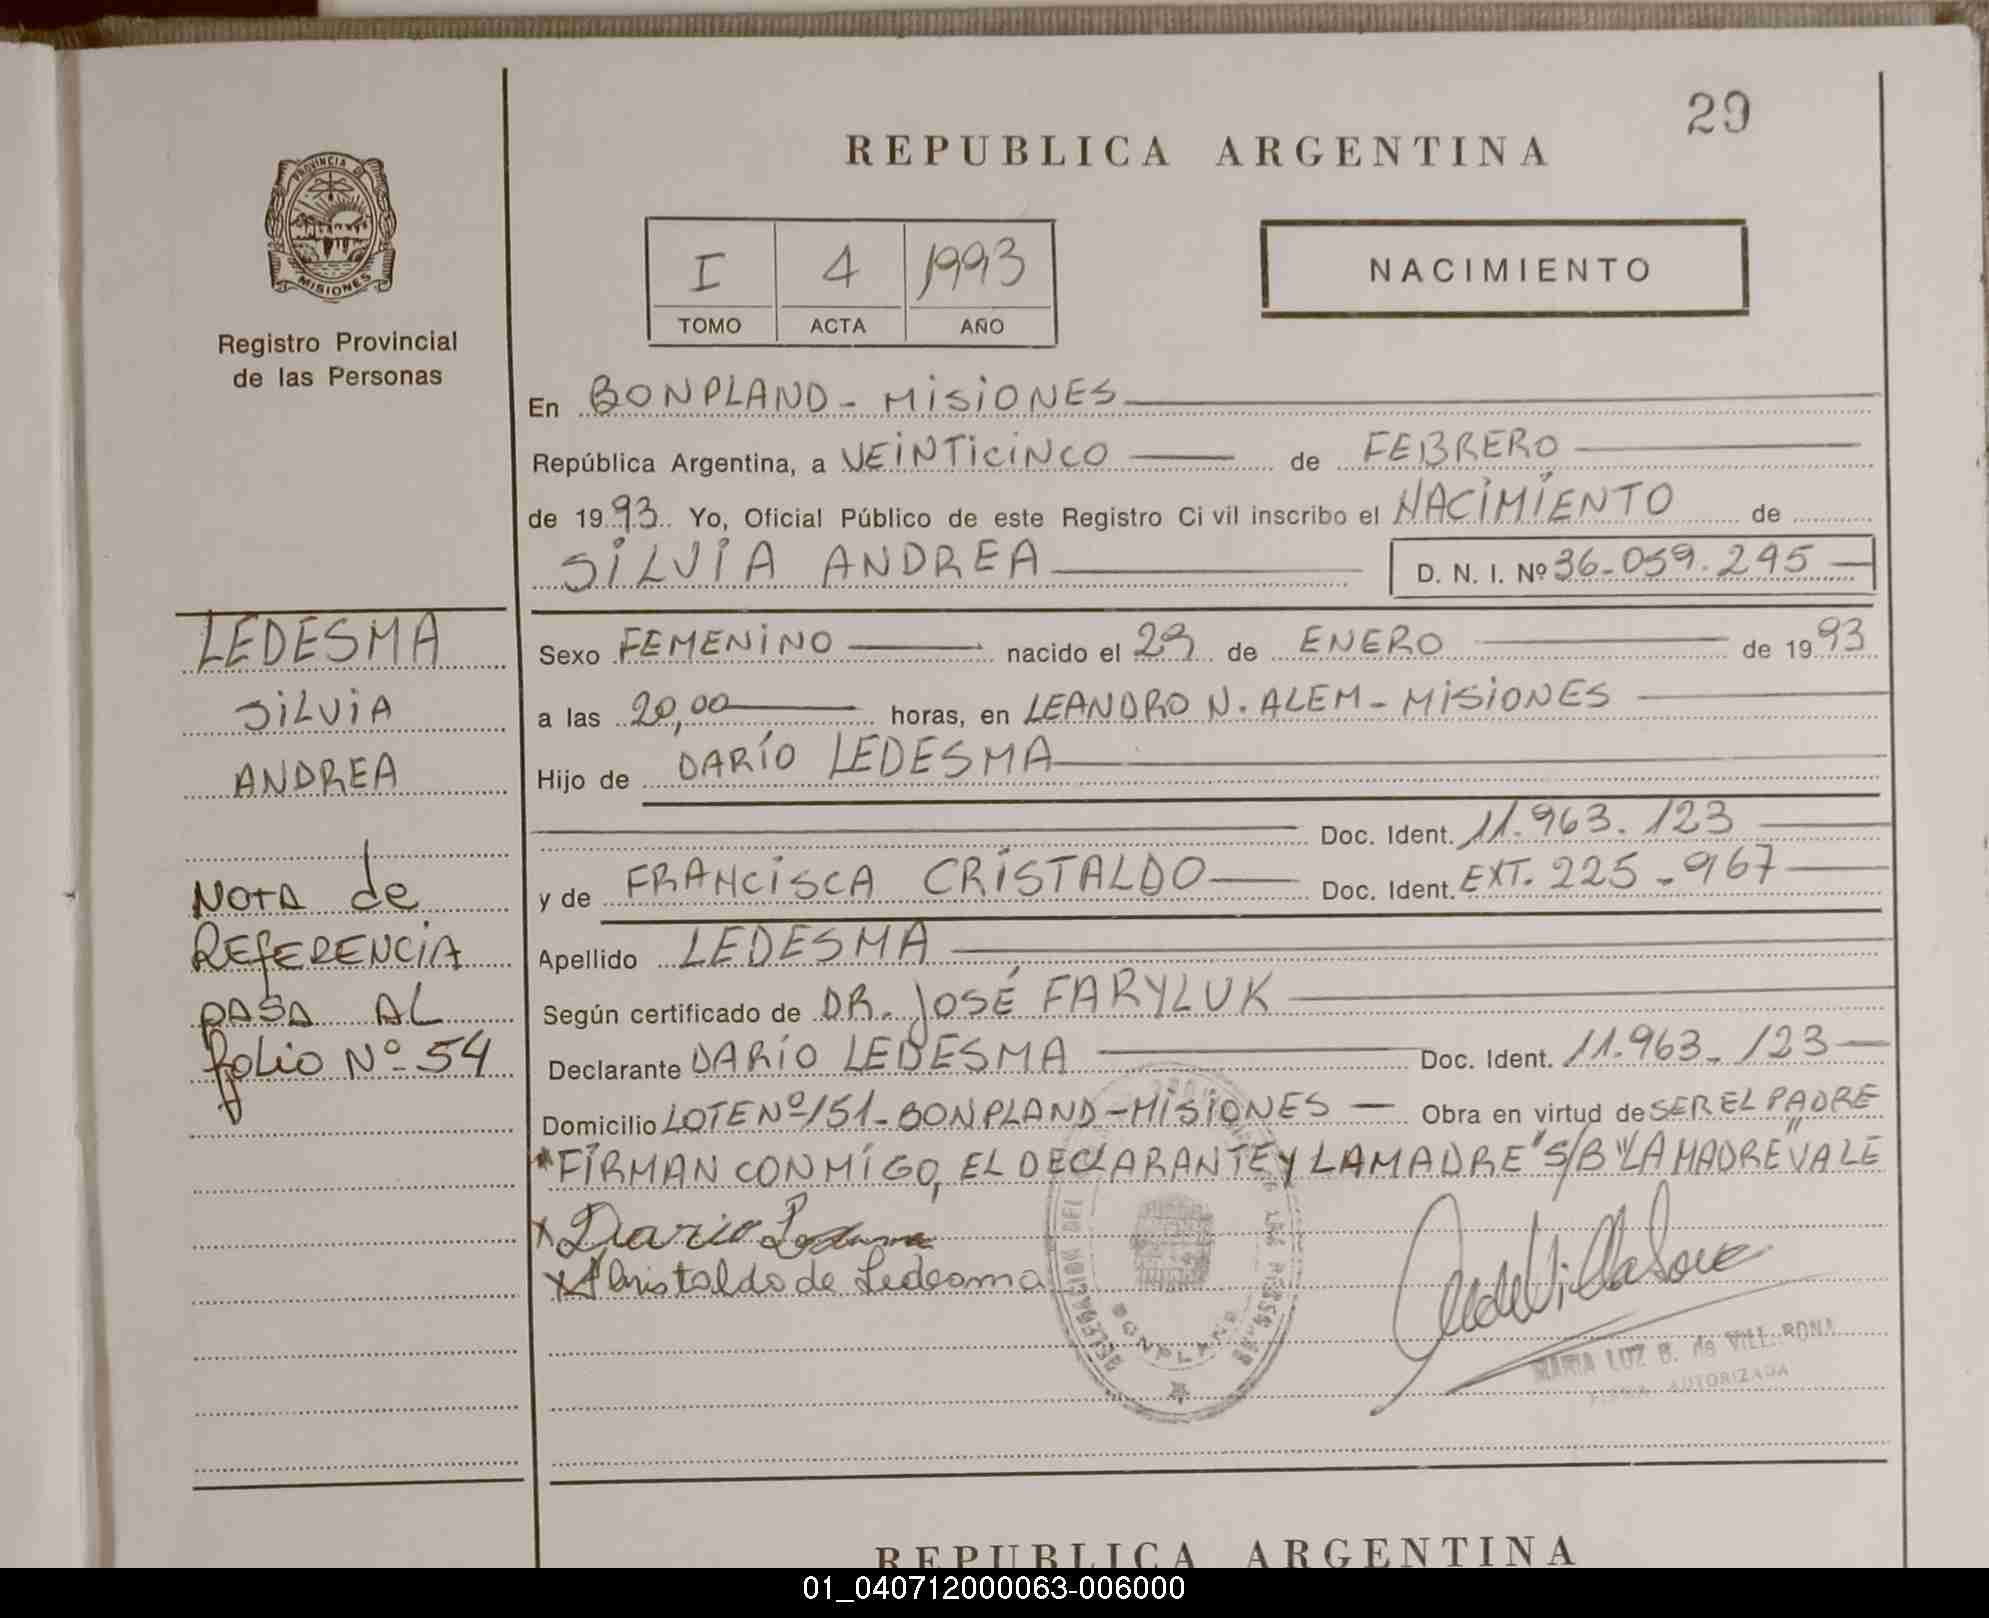 29
REPUBLICA ARGENTINA
PROVINCIA DE
MISIONES
Registro Provincial
de las Personas
I 4 1993
TOMO ACTA AÑO
NACIMIENTO
En BONPLAND - MISIONES
República Argentina, a VEINTICINCO de FEBRERO
de 1993 Yo, Oficial Público de este Registro Civil inscribo el NACIMIENTO de
SILVIA ANDREA D. N. I. Nº 36-059.295
Sexo FEMENINO nacido el 29 de ENERO de 1993
a las 20,00 horas, en LEANDRO N. ALEM - MISIONES
Hijo de DARÍO LEDESMA
Doc. Ident. 11.963.123
y de FRANCISCA CRISTALDO Doc. Ident. EXT. 225-967
Apellido LEDESMA
Según certificado de DR. JOSÉ FARYLUK
Declarante DARÍO LEDESMA Doc. Ident. 11.963-123
Domicilio LOTE Nº 151-BONPLAND-MISIONES Obra en virtud de SER EL PADRE
"FIRMAN CONMIGO, EL DECLARANTE Y LA MADRE" S/B "LA MADRE" VALE
x Dario Ledesma
x Cristaldo de Ledesma
BONPLAND
MARIA LUZ B. de
FIRMA AUTORIZADA
LEDESMA
SILVIA
ANDREA
NOTA de
REFERENCIA
PASA AL
folio Nº 54
REPUBLICA ARGENTINA
01_040712000063-006000